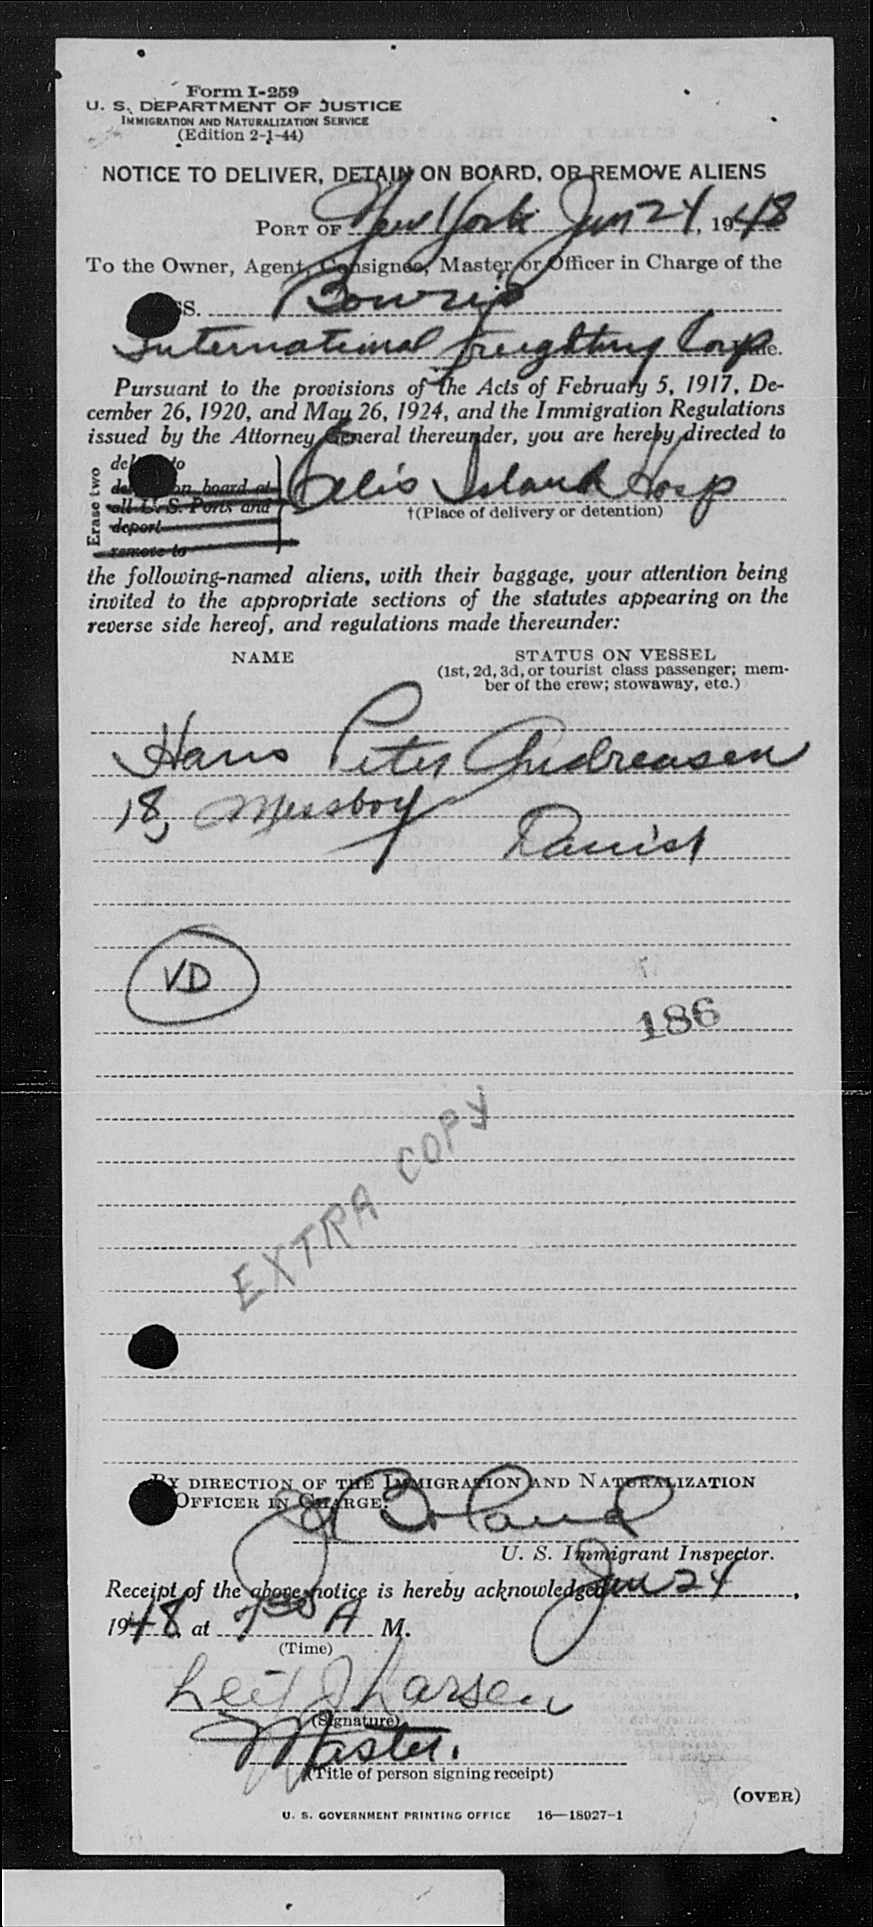 Form I-259
U. S. DEPARTMENT OF JUSTICE
IMMIGRATION AND NATURALIZATION SERVICE
(Edition 2-1-44)
NOTICE TO DELIVER, DETAIN ON BOARD, OR REMOVE ALIENS
PORT OF New York Jan 24, 1948
To the Owner, Agent, Consignee, Master, or Officer in Charge of the
SS.
International Freighting Corp
Pursuant to the provisions of the Acts of February 5, 1917, De-
cember 26, 1920, and May 26, 1924, and the Immigration Regulations
issued by the Attorney General thereunder, you are hereby directed to
Erase two
deliver to
detain on board at
all U. S. Ports and
deport
remove to
Ellis Island Hosp
†(Place of delivery or detention)
the following-named aliens, with their baggage, your attention being
invited to the appropriate sections of the statutes appearing on the
reverse side hereof, and regulations made thereunder:
NAME STATUS ON VESSEL
(1st, 2d, 3d, or tourist class passenger; mem-
ber of the crew; stowaway, etc.)
Hans Peter Andreasen
18, Messboy
Danish
VD
186
EXTRA COPY
BY DIRECTION OF THE IMMIGRATION AND NATURALIZATION
OFFICER IN CHARGE:
Boland
U. S. Immigrant Inspector.
Receipt of the above notice is hereby acknowledged Jan 24,
1948, at 730 A M.
(Time)
Leif J Larsen
(Signature)
Master.
(Title of person signing receipt)
(OVER)
U. S. GOVERNMENT PRINTING OFFICE 16—18927-1